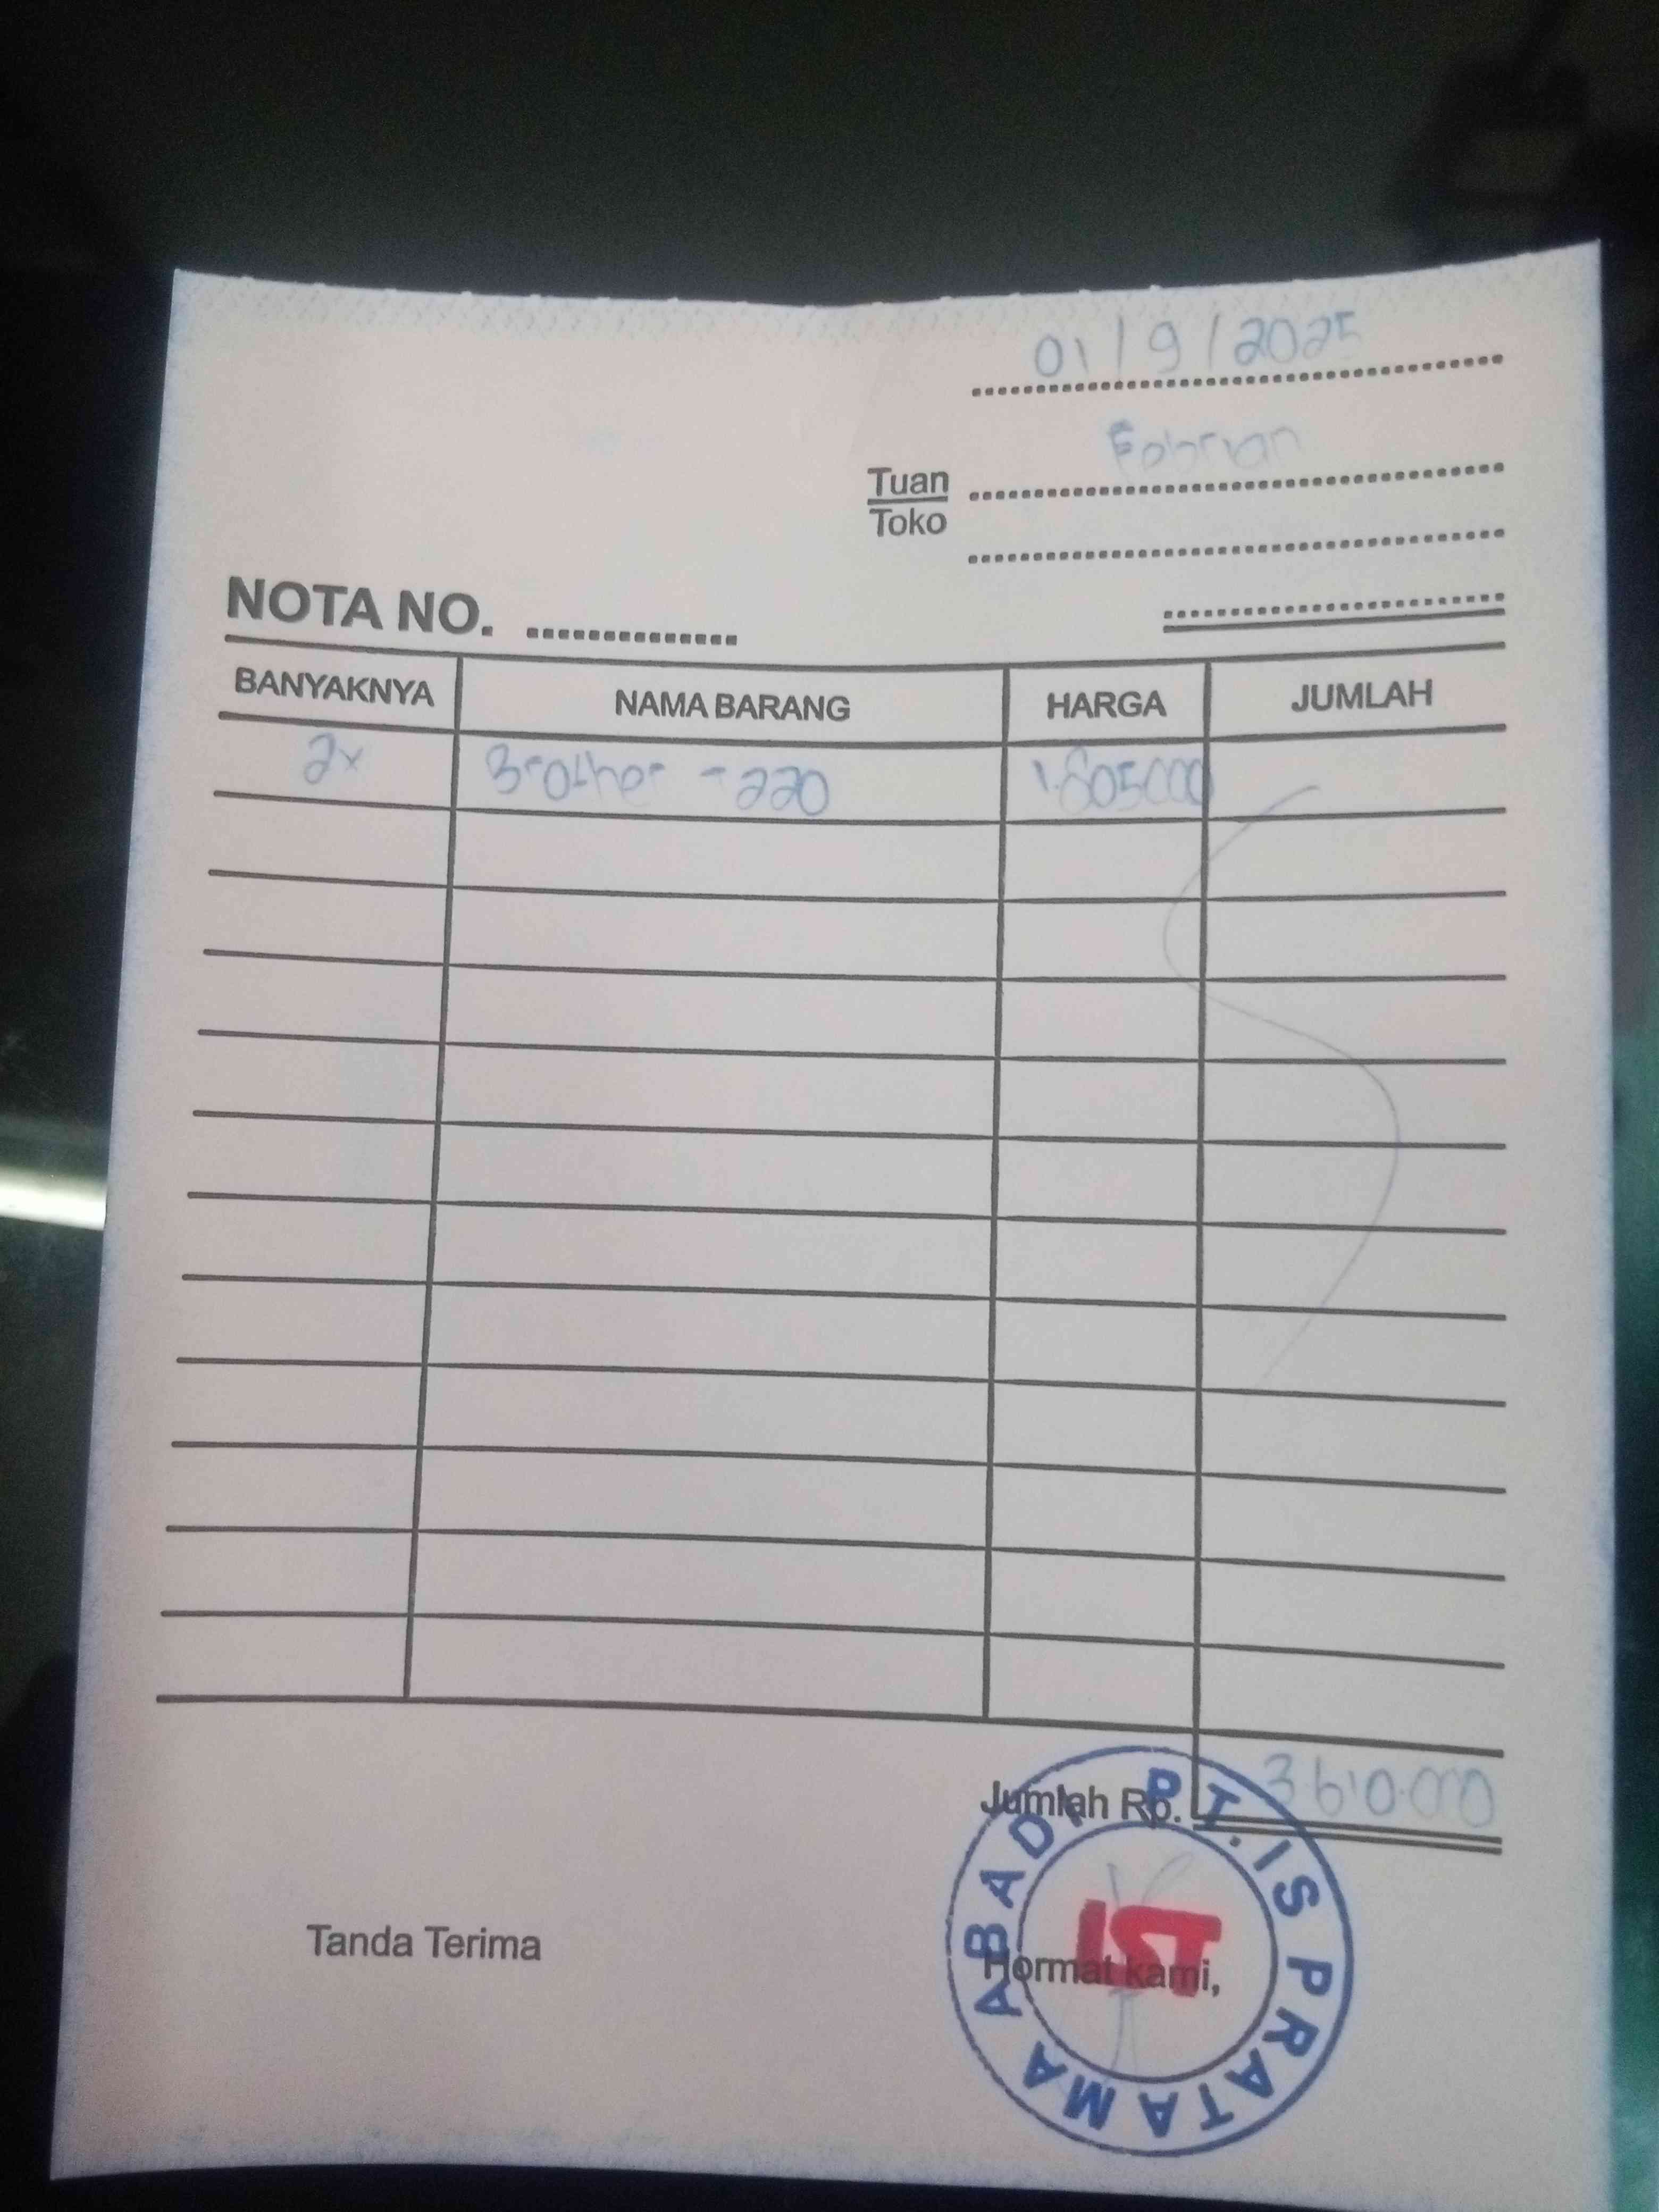 01/9/2025
Febrian
Tuan
Toko
NOTA NO.
BANYAKNYA NAMA BARANG HARGA JUMLAH
2x Brother -220 1.805000
Jumlah Rp. 3.610.000
Tanda Terima
Hormat kami,
PT. IS PRATAMA ABADI
IST